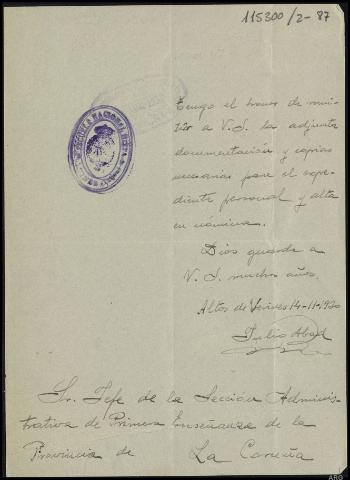 115300/2-87
ESCUELA NACIONAL
Tengo el honor de remi-
tir a V.S. la adjunta
documentación y copias
necesarias para el expe-
diente personal y alta
en nómina.
Dios guarde a
V.S. muchos años.
Altos de 14-11-1930
Julio Abad
Sr. Jefe de la Sección Adminis-
trativa de Primera Enseñanza de la
Provincia de La Coruña
ARG